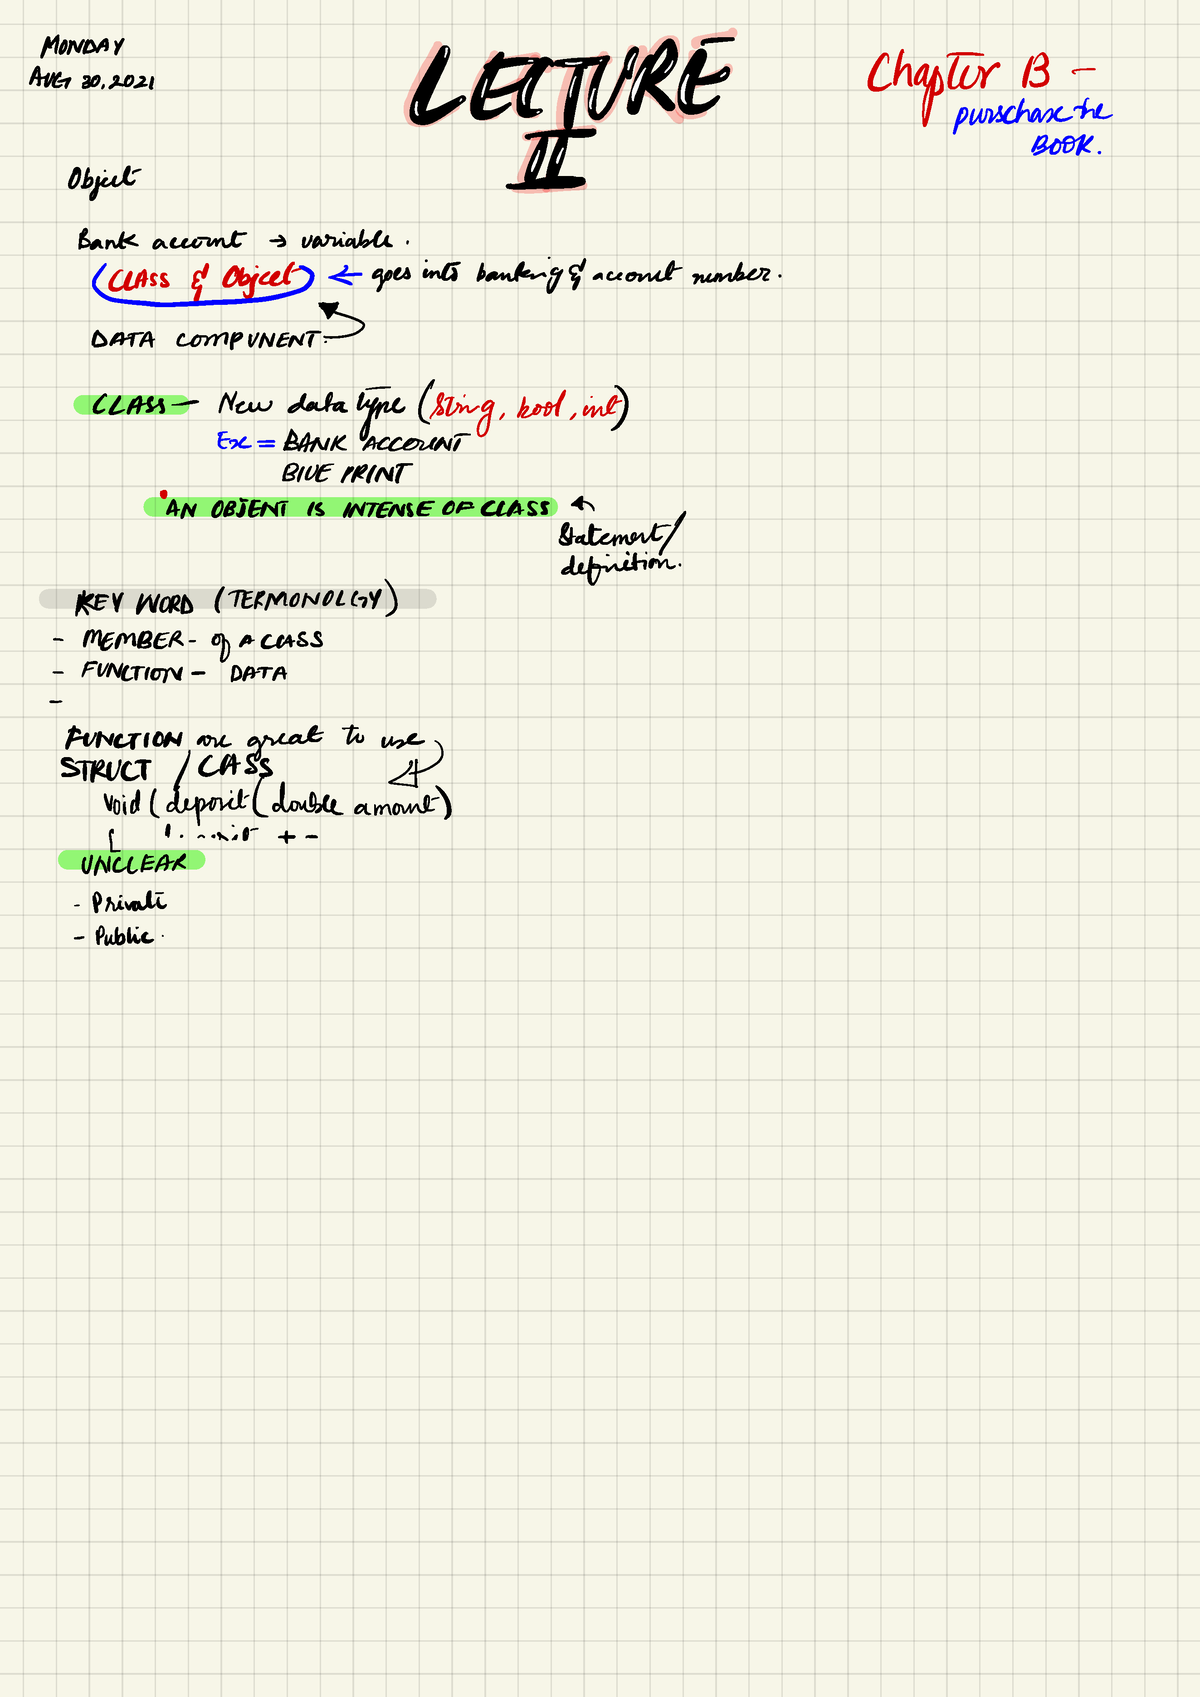 MONDAY
AUG 30, 2021
LECTURE
II
Chapter 13 -
purschase the
BOOK.
Object
Bank account → variable.
(CLASS & Object) ← goes into banking & account number.
DATA COMPUNENT.
CLASS - New data type (string, bool, int)
Ex = BANK ACCOUNT
BLUE PRINT
• AN OBJENT IS INTENSE OF CLASS
Statement/
definition.
KEY WORD (TERMONOLGY)
- MEMBER - of a CLASS
- FUNCTION - DATA
-
FUNCTION are great to use
STRUCT / CLASS
void (deposit (double amount)
+ -
UNCLEAR
- Private
- Public.